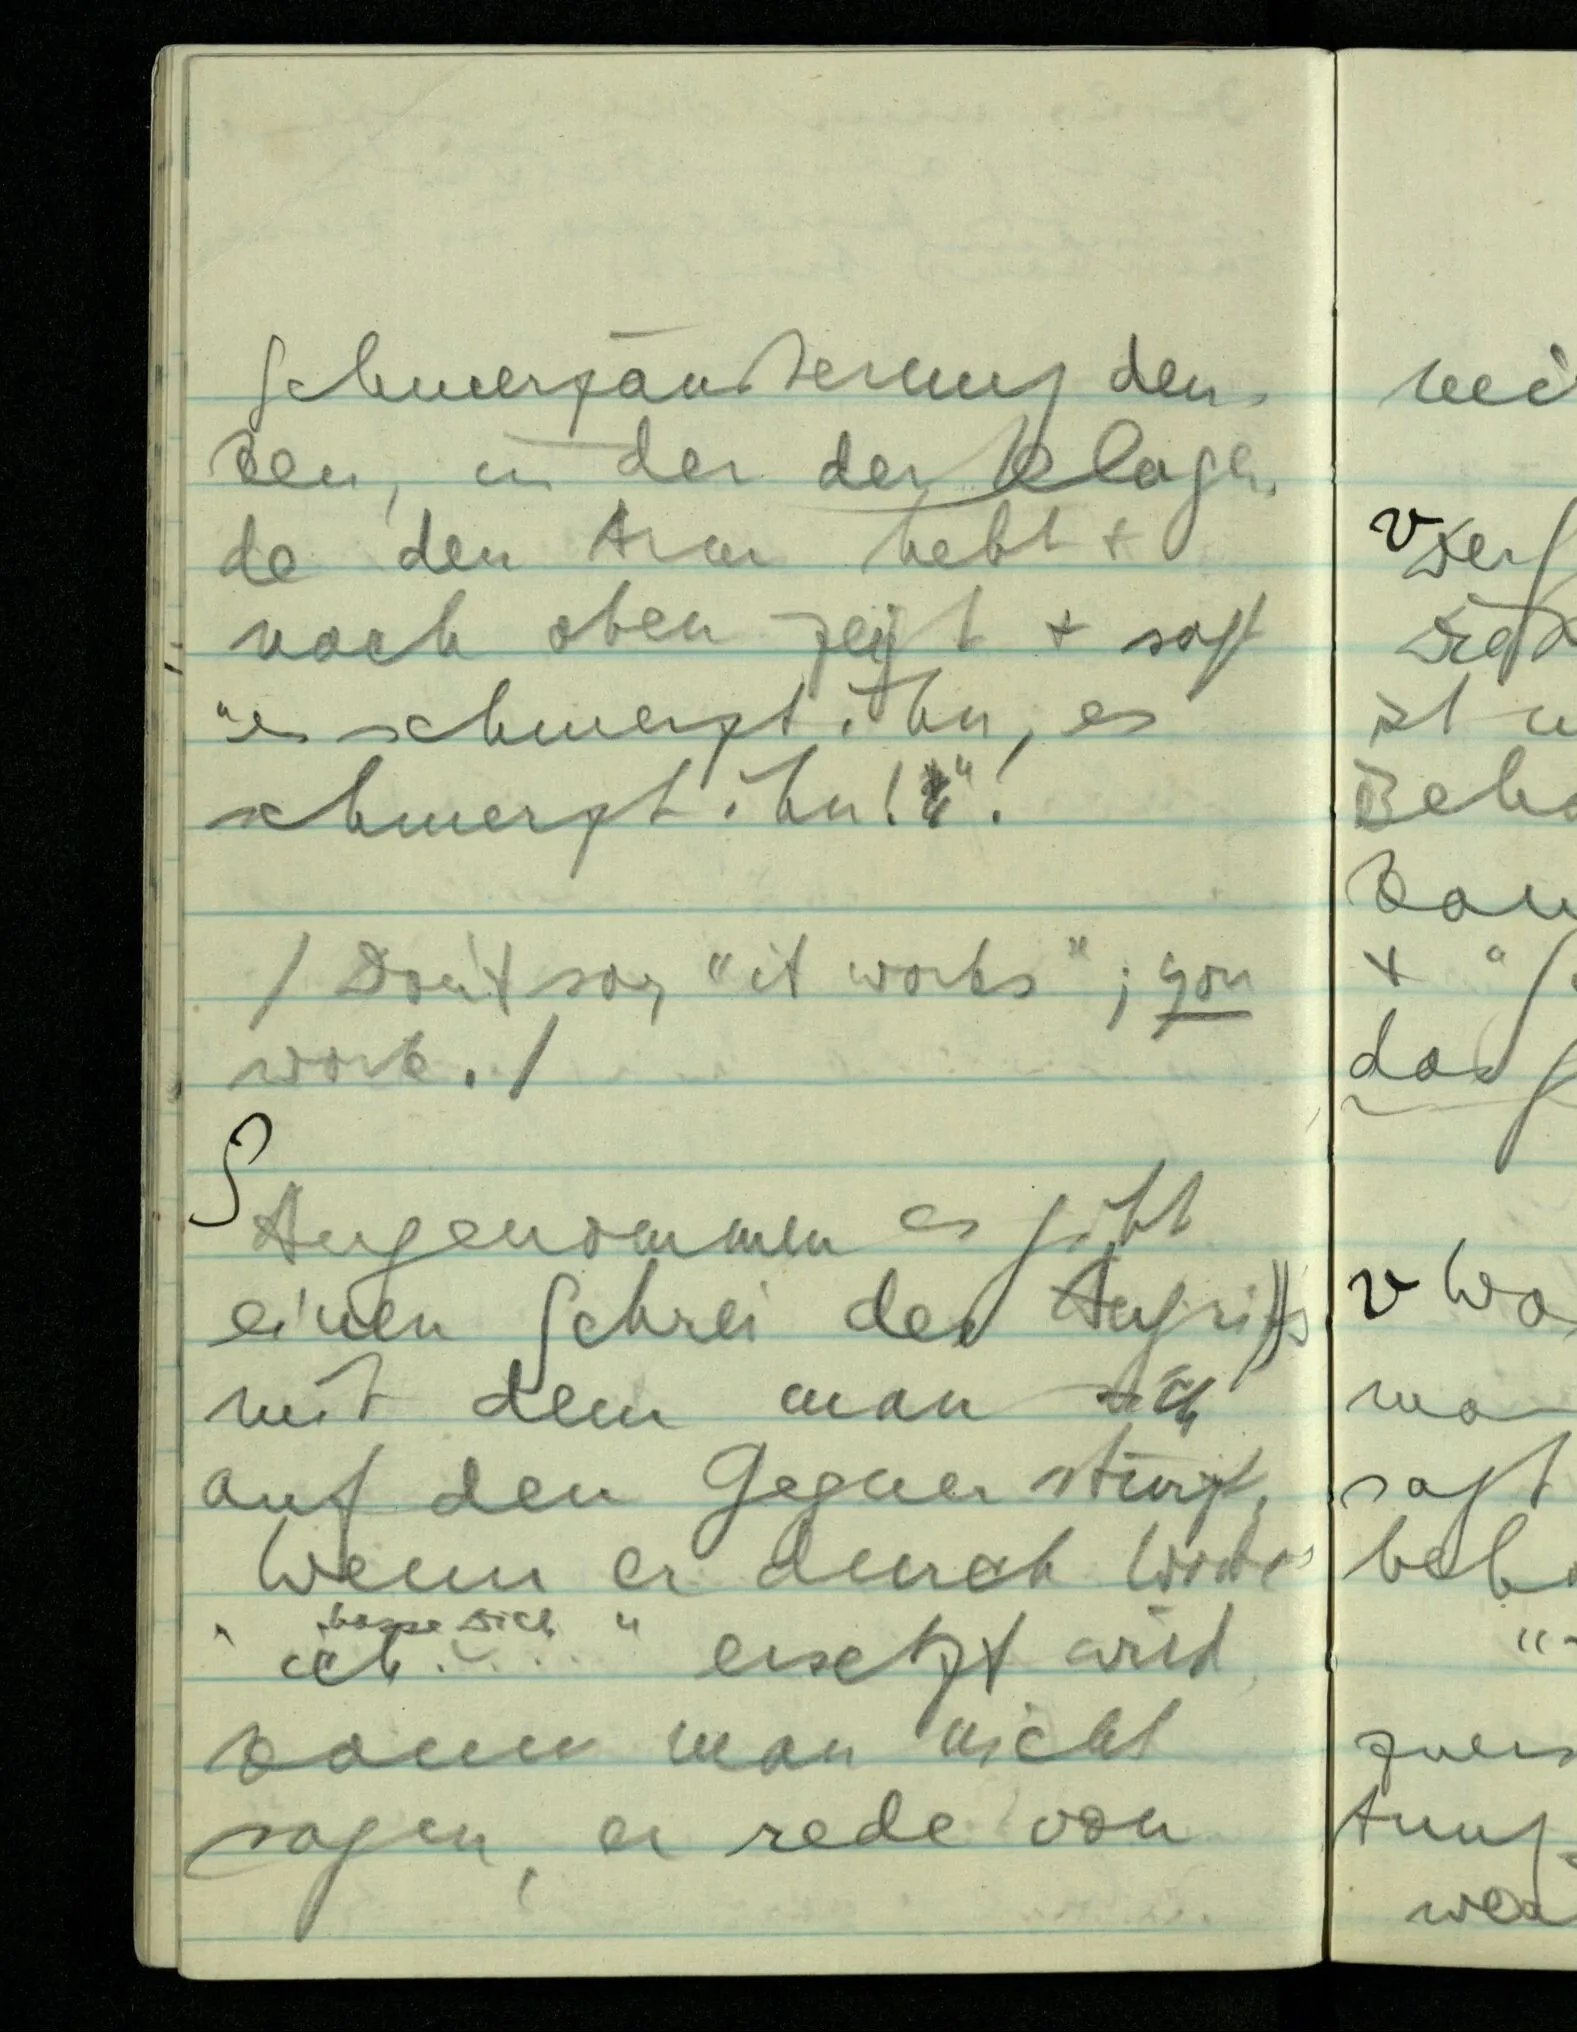 Schmerzäusserung den-
ken, in der der Klagen-
de den Arm hebt +
nach oben zeigt + sagt
"es schmerzt ihn, es
schmerzt ihn!"!
/ Don't say "it works"; you
work. /
∫
Angenommen es gibt
einen Schrei des Angriffs
mit dem man sich
auf den Gegner stürzt.
Wenn er durch Worte
hasse Dich
"ich ....." ersetzt wird
kann man nicht
sagen, er rede von
mei
v Der
ist
v Wo
ma
sagt
"
wer